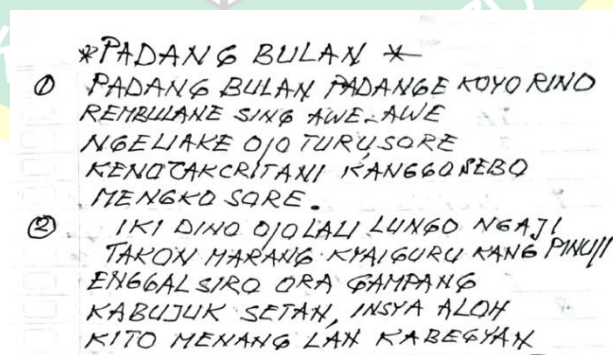 *PADANG BULAN *
① PADANG BULAN PADANGE KOYO RINO
REMBULANE SING AWE-AWE
NGELIAKE OJO TURU SORE
KENO TAK CRITANI KANGGO SEBO
MENGKO SORE.
② IKI DINO OJO LALI LUNGO NGAJI
TAKON MARANG KYAI GURU KANG PINUJI
ENGGAL SIRO ORA GAMPANG
KABUJUK SETAN, INSYA ALOH
KITO MENANG LAN KABEGYAN